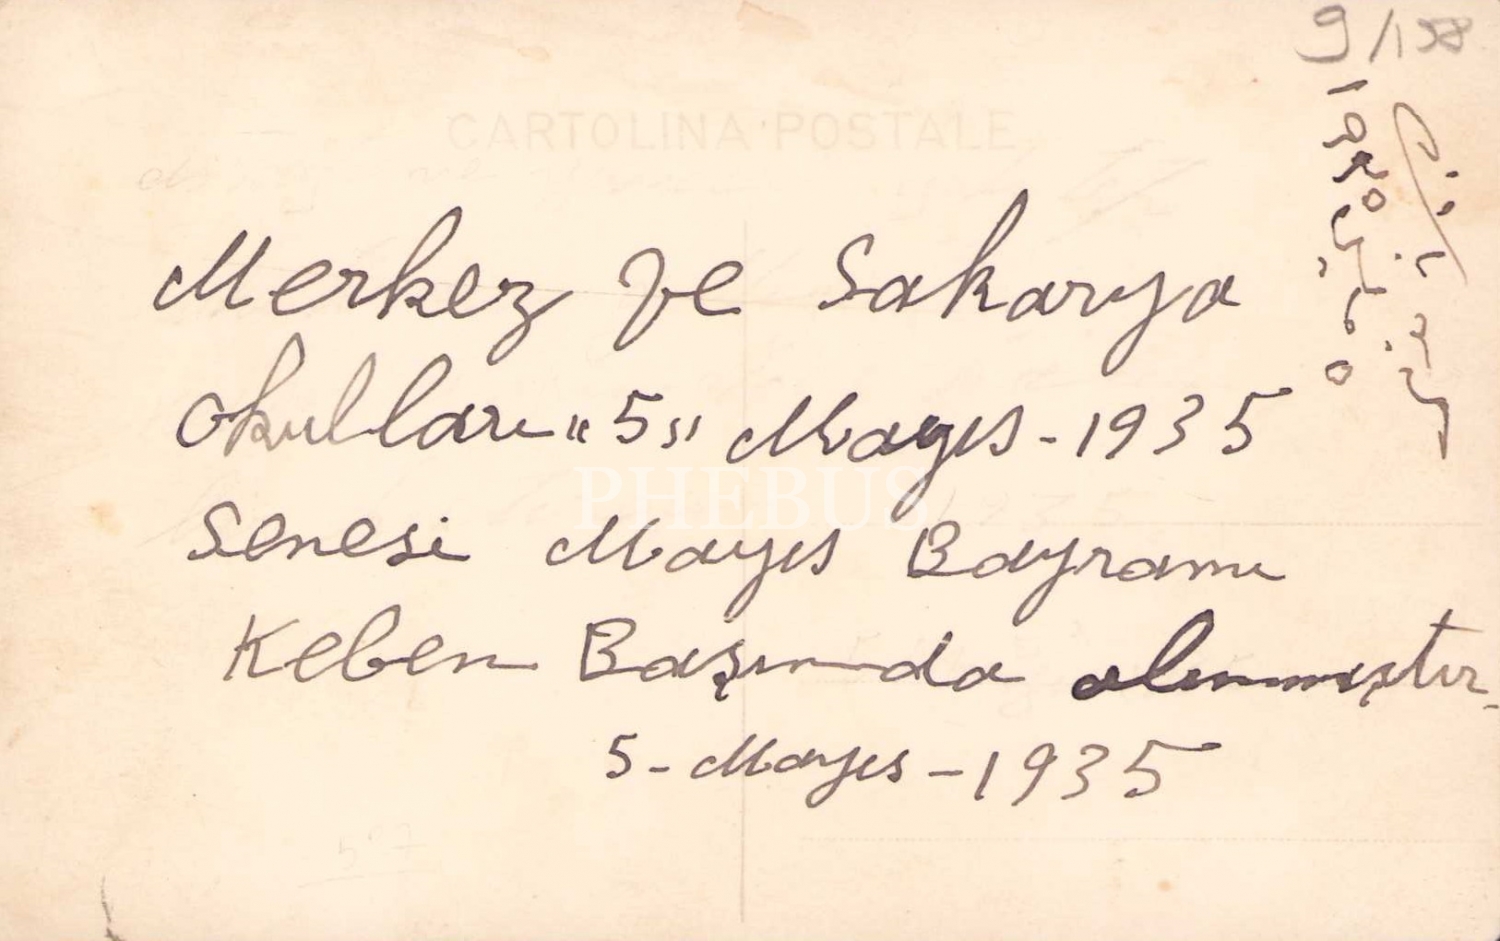 9/158
CARTOLINA POSTALE
Merkez ve Sakarya
okulları "5" Mayıs-1935
Senesi Mayıs Bayramı
Keben Başında alınmıştır.
5-Mayıs-1935
PHEBUS